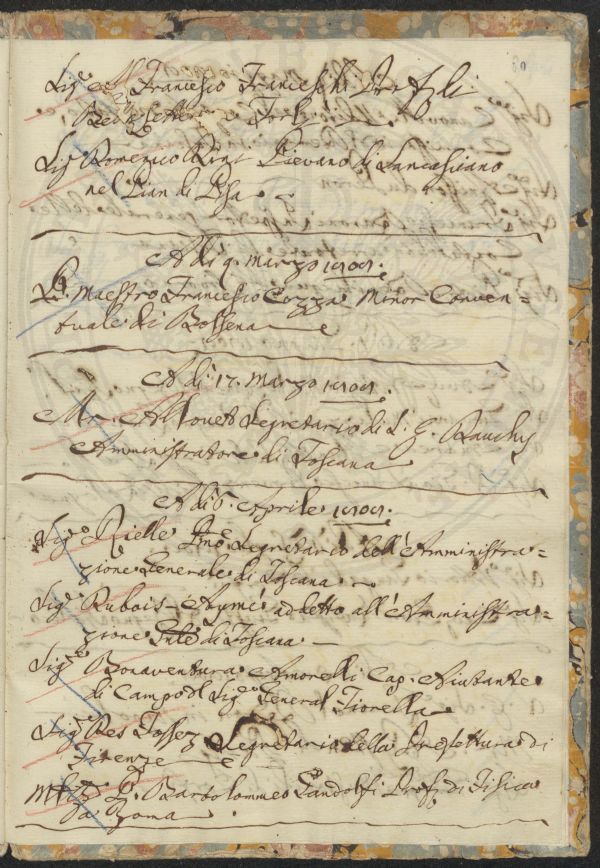 60
Sig.e Francesco Franceschi Prof. di
Belle Lettere a Forlì
Sig. Domenico Pievano di
nel Pian di Pisa
A di 9. Marzo 1809.
P. Maestro Francesco Cozza Minor Conven=
tuale di Bolsena
A di 17. Marzo 1809.
Mr. Segretario di S. E.
Amministratore di Toscana
A di 6. Aprile 1809.
Sig.e Rielle Pmo. Segretario dell'Amministra=
zione Generale di Toscana
Sig.e Rubois-Aymé addetto all'Amministra=
zione Gnle di Toscana
Sig.e Bonaventura Amorelli Cap. Aiutante
di Campo del Sig.e General Fiorella
Sig.e Segretario della Prefettura di
Firenze
P. Bartolommeo Gandolfi Prof. di Fisica
a Roma